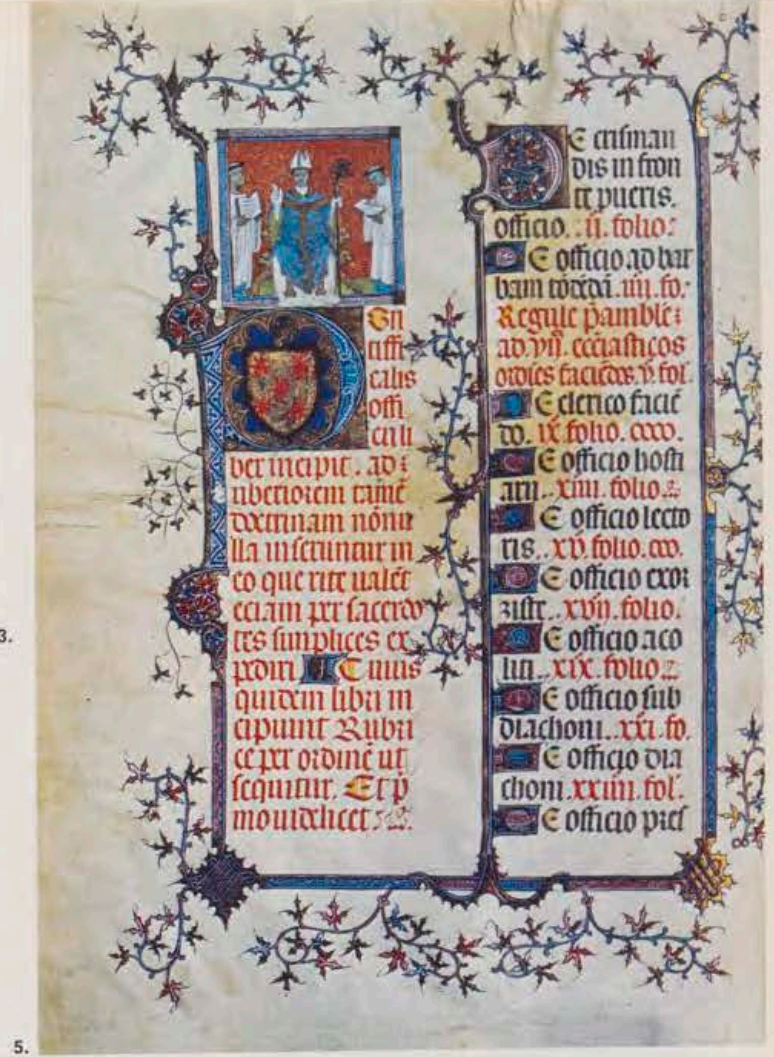 On
tiffi
calis
offi
cii li
ber incipit. ad
uberiorem tamē
doctrinam nōnu
lla inseruntur in
eo que rite ualēt
eciam per sacerdo
tes simplices ex
pediri Cuius
quidem libri in
cipiunt Rubri
ce per ordinē ut
sequitur. Et p̄
mo uidelicet
DE crisman
dis in fron
te pueris.
officio. .ii. folio.
DE officio ad bar
bam tōdēdā .iiii. fo.
Regule p̄amble
ad .vii. ecc̄iasticos
ordīes faciēdos .v. fol.
DE clerico faciē
do. .ix. folio.
DE officio hosti
arii. .xiiii. folio.
DE officio lecto
ris. .xv. folio.
DE officio exor
ziste. .xvii. folio.
DE officio aco
liti. .xix. folio.
DE officio sub
diachoni. .xxi. fo.
DE officio dia
choni .xxiiii. fol.
DE officio pres
3.
5.